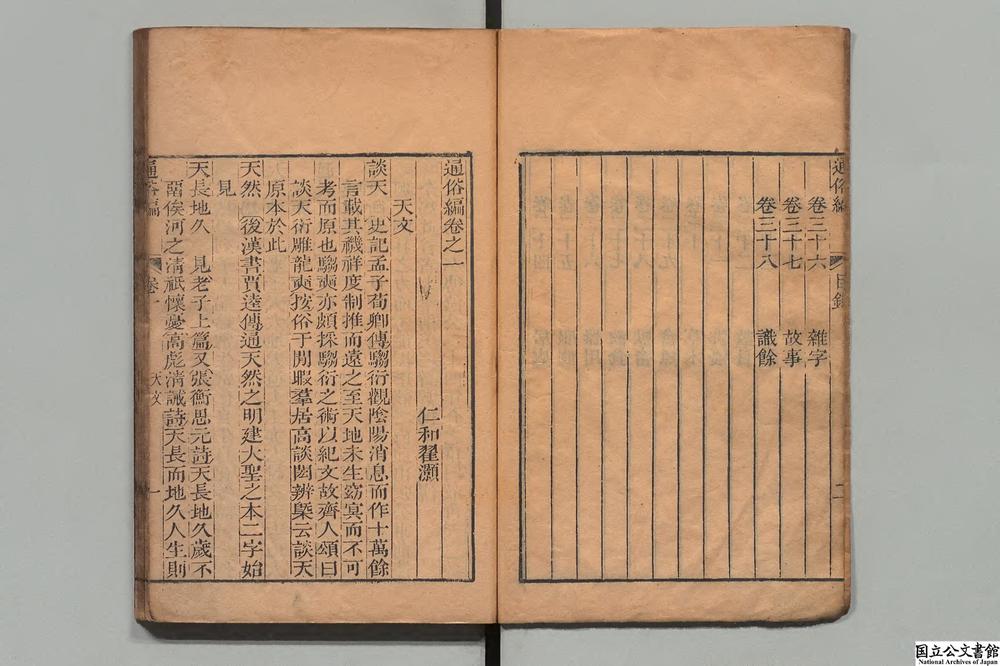 通俗編 目録 二
卷三十六 雜字
卷三十七 故事
卷三十八 識餘
通俗編卷之一
仁和翟灝
天文
談天 史記孟子荀卿傳騶衍觀陰陽消息而作十萬餘
言載其禨祥度制推而遠之至天地未生窈冥而不可
考而原也騶奭亦頗採騶衍之術以紀文故齊人頌曰
談天衍雕龍奭按俗于閒暇羣居高談閎辨槩云談天
原本於此
天然 〔後漢書賈逵傳通天然之明建大聖之本二字始
見
天長地久 見老子上篇又張衡思元詩天長地久歲不
畱俟河之淸祇懷憂高彪淸誡詩天長而地久人生則
通俗編 卷一 天文 一
国立公文書館
National Archives of Japan